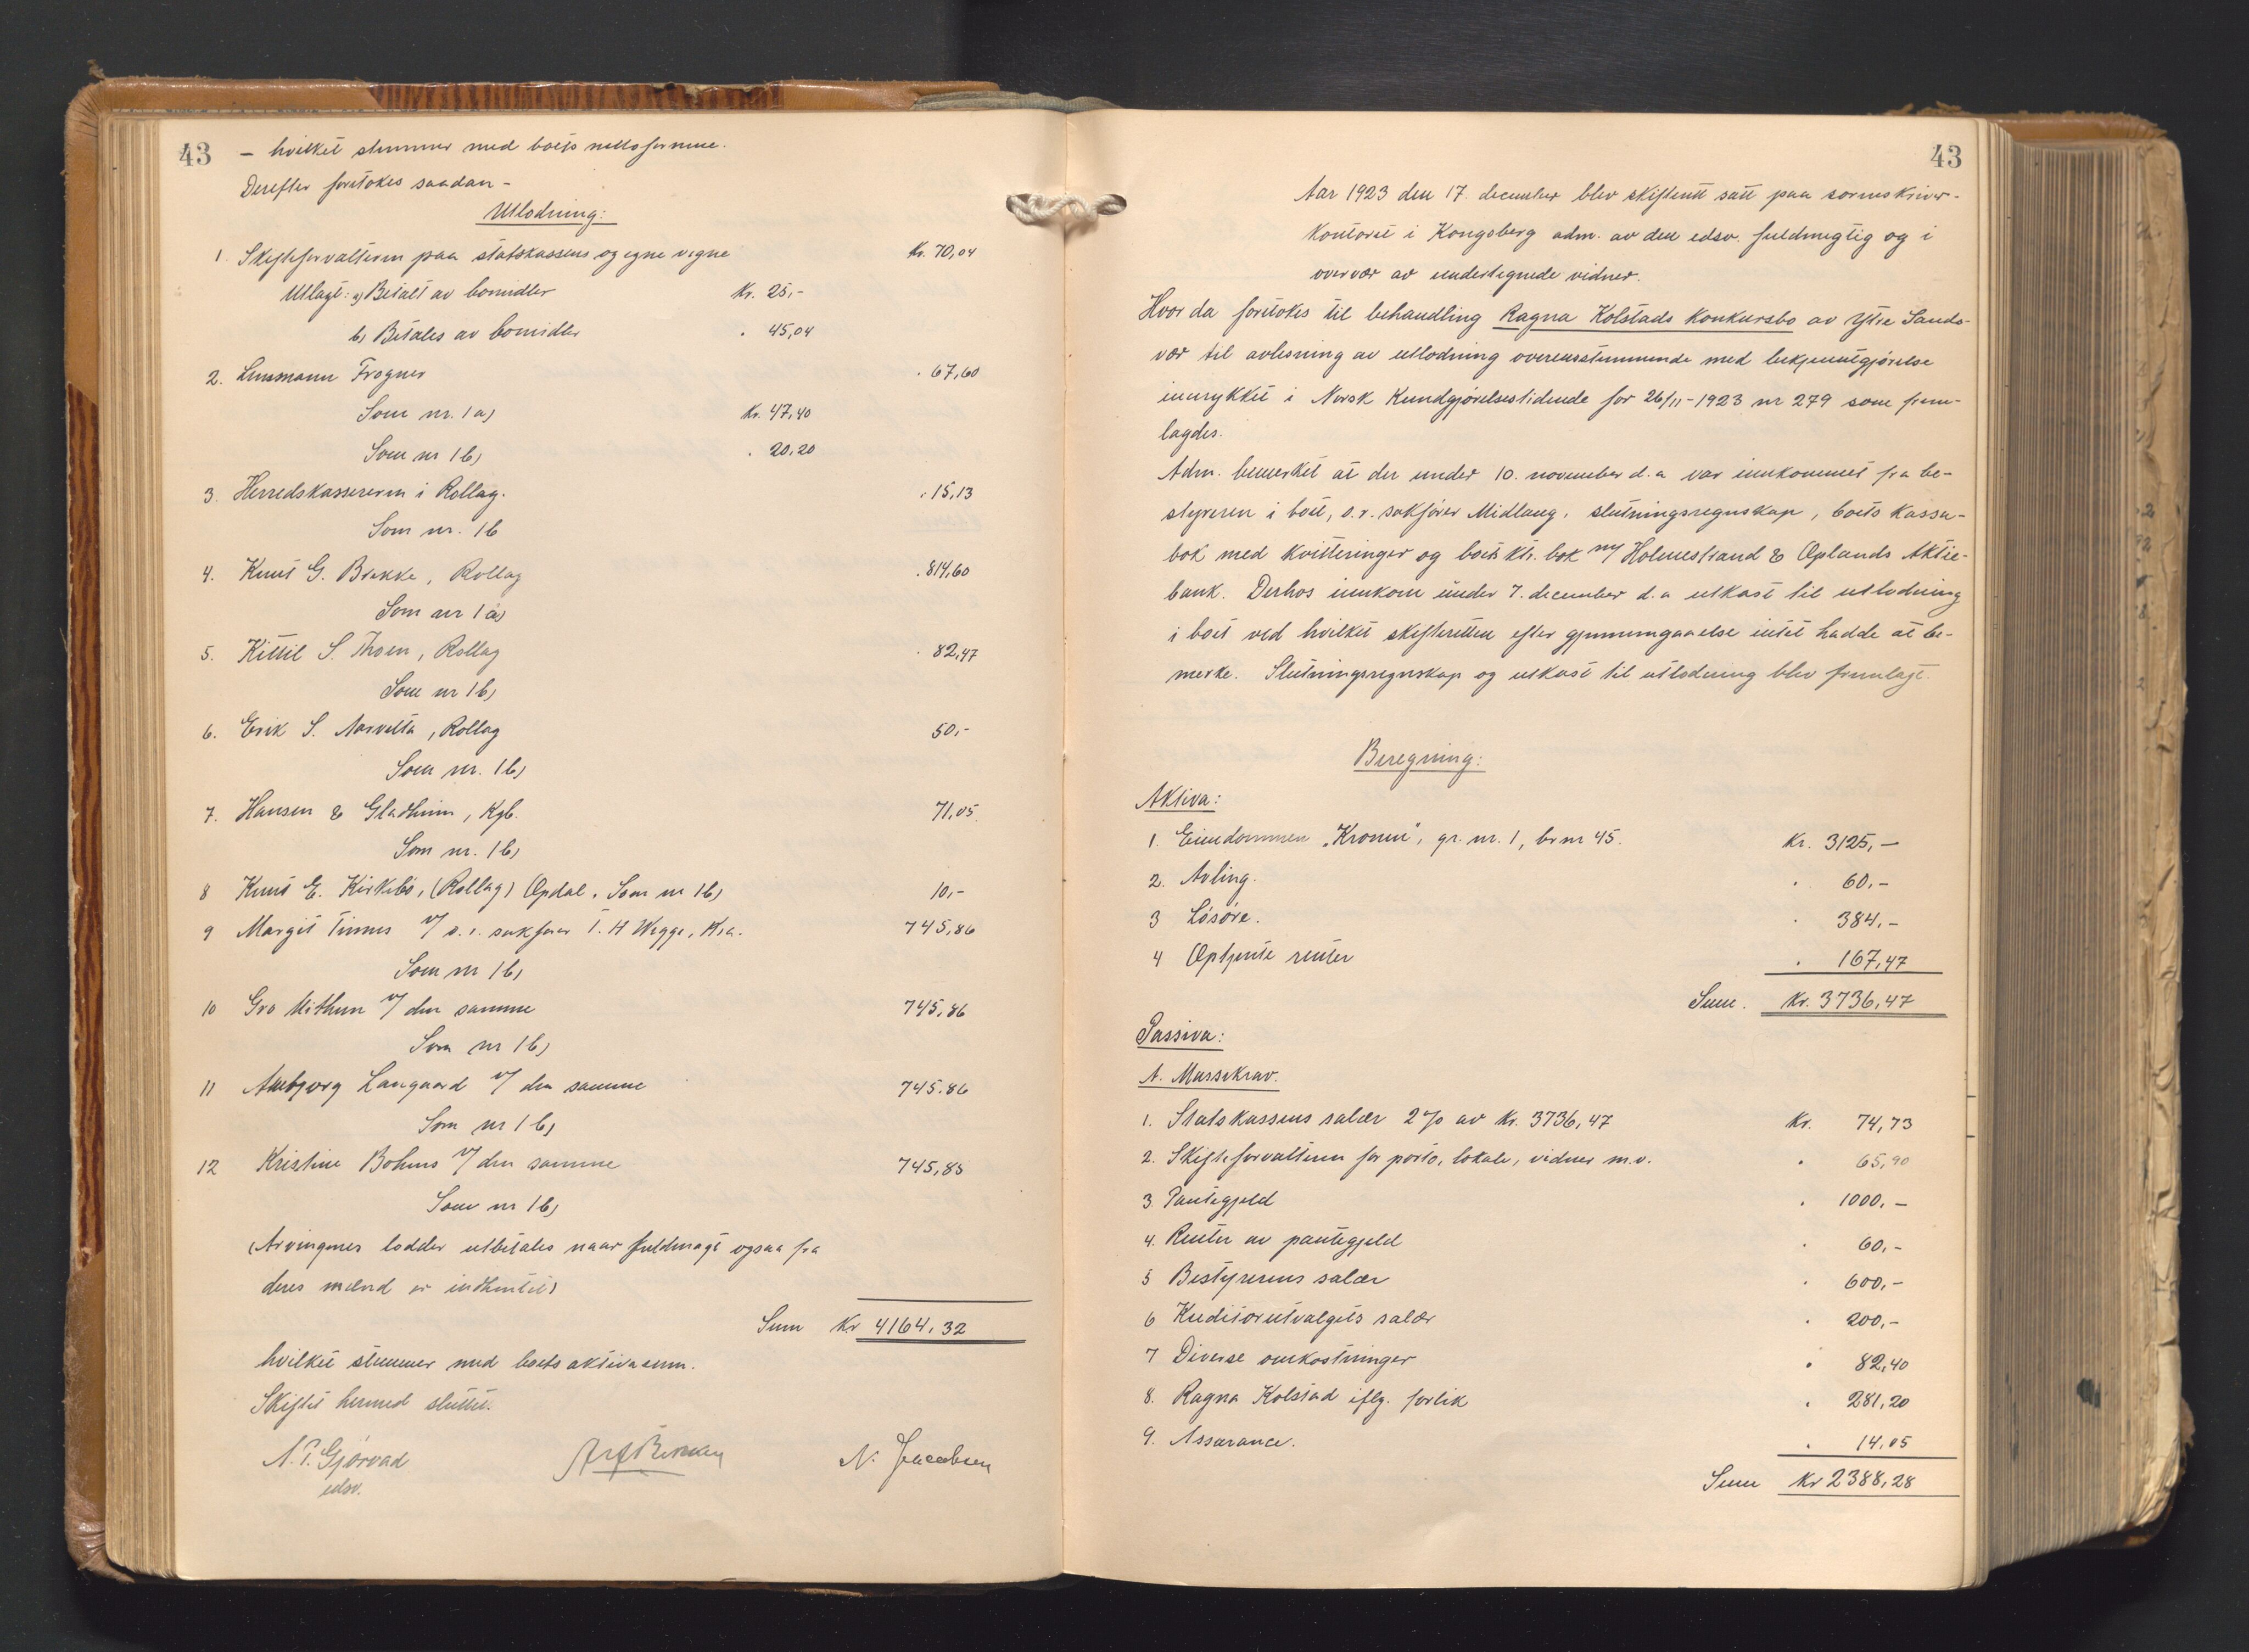 43
— hvilket stemmer med boets nettoformue.
Derefter foretokes saadan -
Utlodning:
1. Skifteforvalteren paa statskassens og egne vegne Kr. 70,04
Utlagt: a) Betalt av bomidler Kr. 25,-
b) Betales av bomidler " 45,04
2. Lensmann Frogner " 67,60
Som nr. 1 a) Kr. 47,40
Som nr 1 b) " 20,20
3. Herredskassereren i Rollag. " 15,13
Som nr. 1 b
4. Knut G. Brekke, Rollag " 814,60
Som nr 1 a)
5. Kittil S. Thoen, Rollag " 82,47
Som nr 1 b)
6. Erik S. Aarvelta, Rollag 50,-
Som nr. 1 b)
7. Hansen & Gladheim, Kgb. 71,05
Som nr. 1 b)
8 Knut E. Kirkebö, (Rollag) Opdal. Som nr 1 b) 10,-
9 Margit Tinnes v/ o.r. sakfører T. H Wegge, Kra. 745,86
Som nr 1 b)
10 Gro Mithun v/ den samme 745,86
Som nr 1 b)
11 Ambjørg Langaard v/ den samme 745,86
Som nr 1 b)
12 Kristine Bohms v/ den samme 745,85
Som nr 1 b)
(Arvingenes lodder utbetales naar fuldmagt ogsaa fra
deres mænd er indhentet)
Sum Kr 4164,32
hvilket stemmer med boets aktivasum.
Skiftet hermed sluttet.
A. T. Gjörvad N. Jacobsen
edsv.
43
Aar 1923 den 17. december blev skifterett satt paa sorenskriver-
kontoret i Kongsberg adm. av den edsv. fuldmegtig og i
overvær av undertegnede vidner.
Hvor da foretokes til behandling Ragna Kolstads konkursbo av Ytre Sands-
vær til avlesning av utlodning overensstemmende med bekjentgjørelse
innrykket i Norsk Kundgjørelsestidende for 26/11-1923 nr 279 som frem-
lagdes.
Adm. bemerket at der under 10. november d.a var innkommet fra be-
styreren i boet, o.r. sakfører Midlaug, slutningsregnskap, boets kasse-
bok med kvitteringer og boets ktr. bok m/ Holmestrand & Oplands Aktie-
bank. Derhos innkom under 7. december d.a utkast til utlodning
i boet ved hvilket skifteretten efter gjennemgaaelse intet hadde at be-
merke. Slutningsregnskap og utkast til utlodning blev fremlagt.
Beregning:
Aktiva:
1. Eiendommen "Kronen", gr. nr. 1, br nr 45. Kr. 3125,—
2. Avling. " 60,-
3 Løsøre. " 384,-
4 Optjente renter " 167,47
Sum. Kr. 3736,47
Passiva:
A. Massekrav.
1. Statskassens salær 2% av Kr. 3736,47 Kr. 74,73
2. Skifteforvalteren for porto, lokale, vidner m.v. " 65,90
3 Pantegjeld " 1000,-
4. Renter av pantegjeld " 60,-
5 Bestyrerens salær " 600,-
6 Kreditorutvalgets salær " 200,-
7 Diverse omkostninger " 82,40
8. Ragna Kolstad iflg. forlik " 281,20
9. Assurance. " 14,05
Sum Kr 2388,28